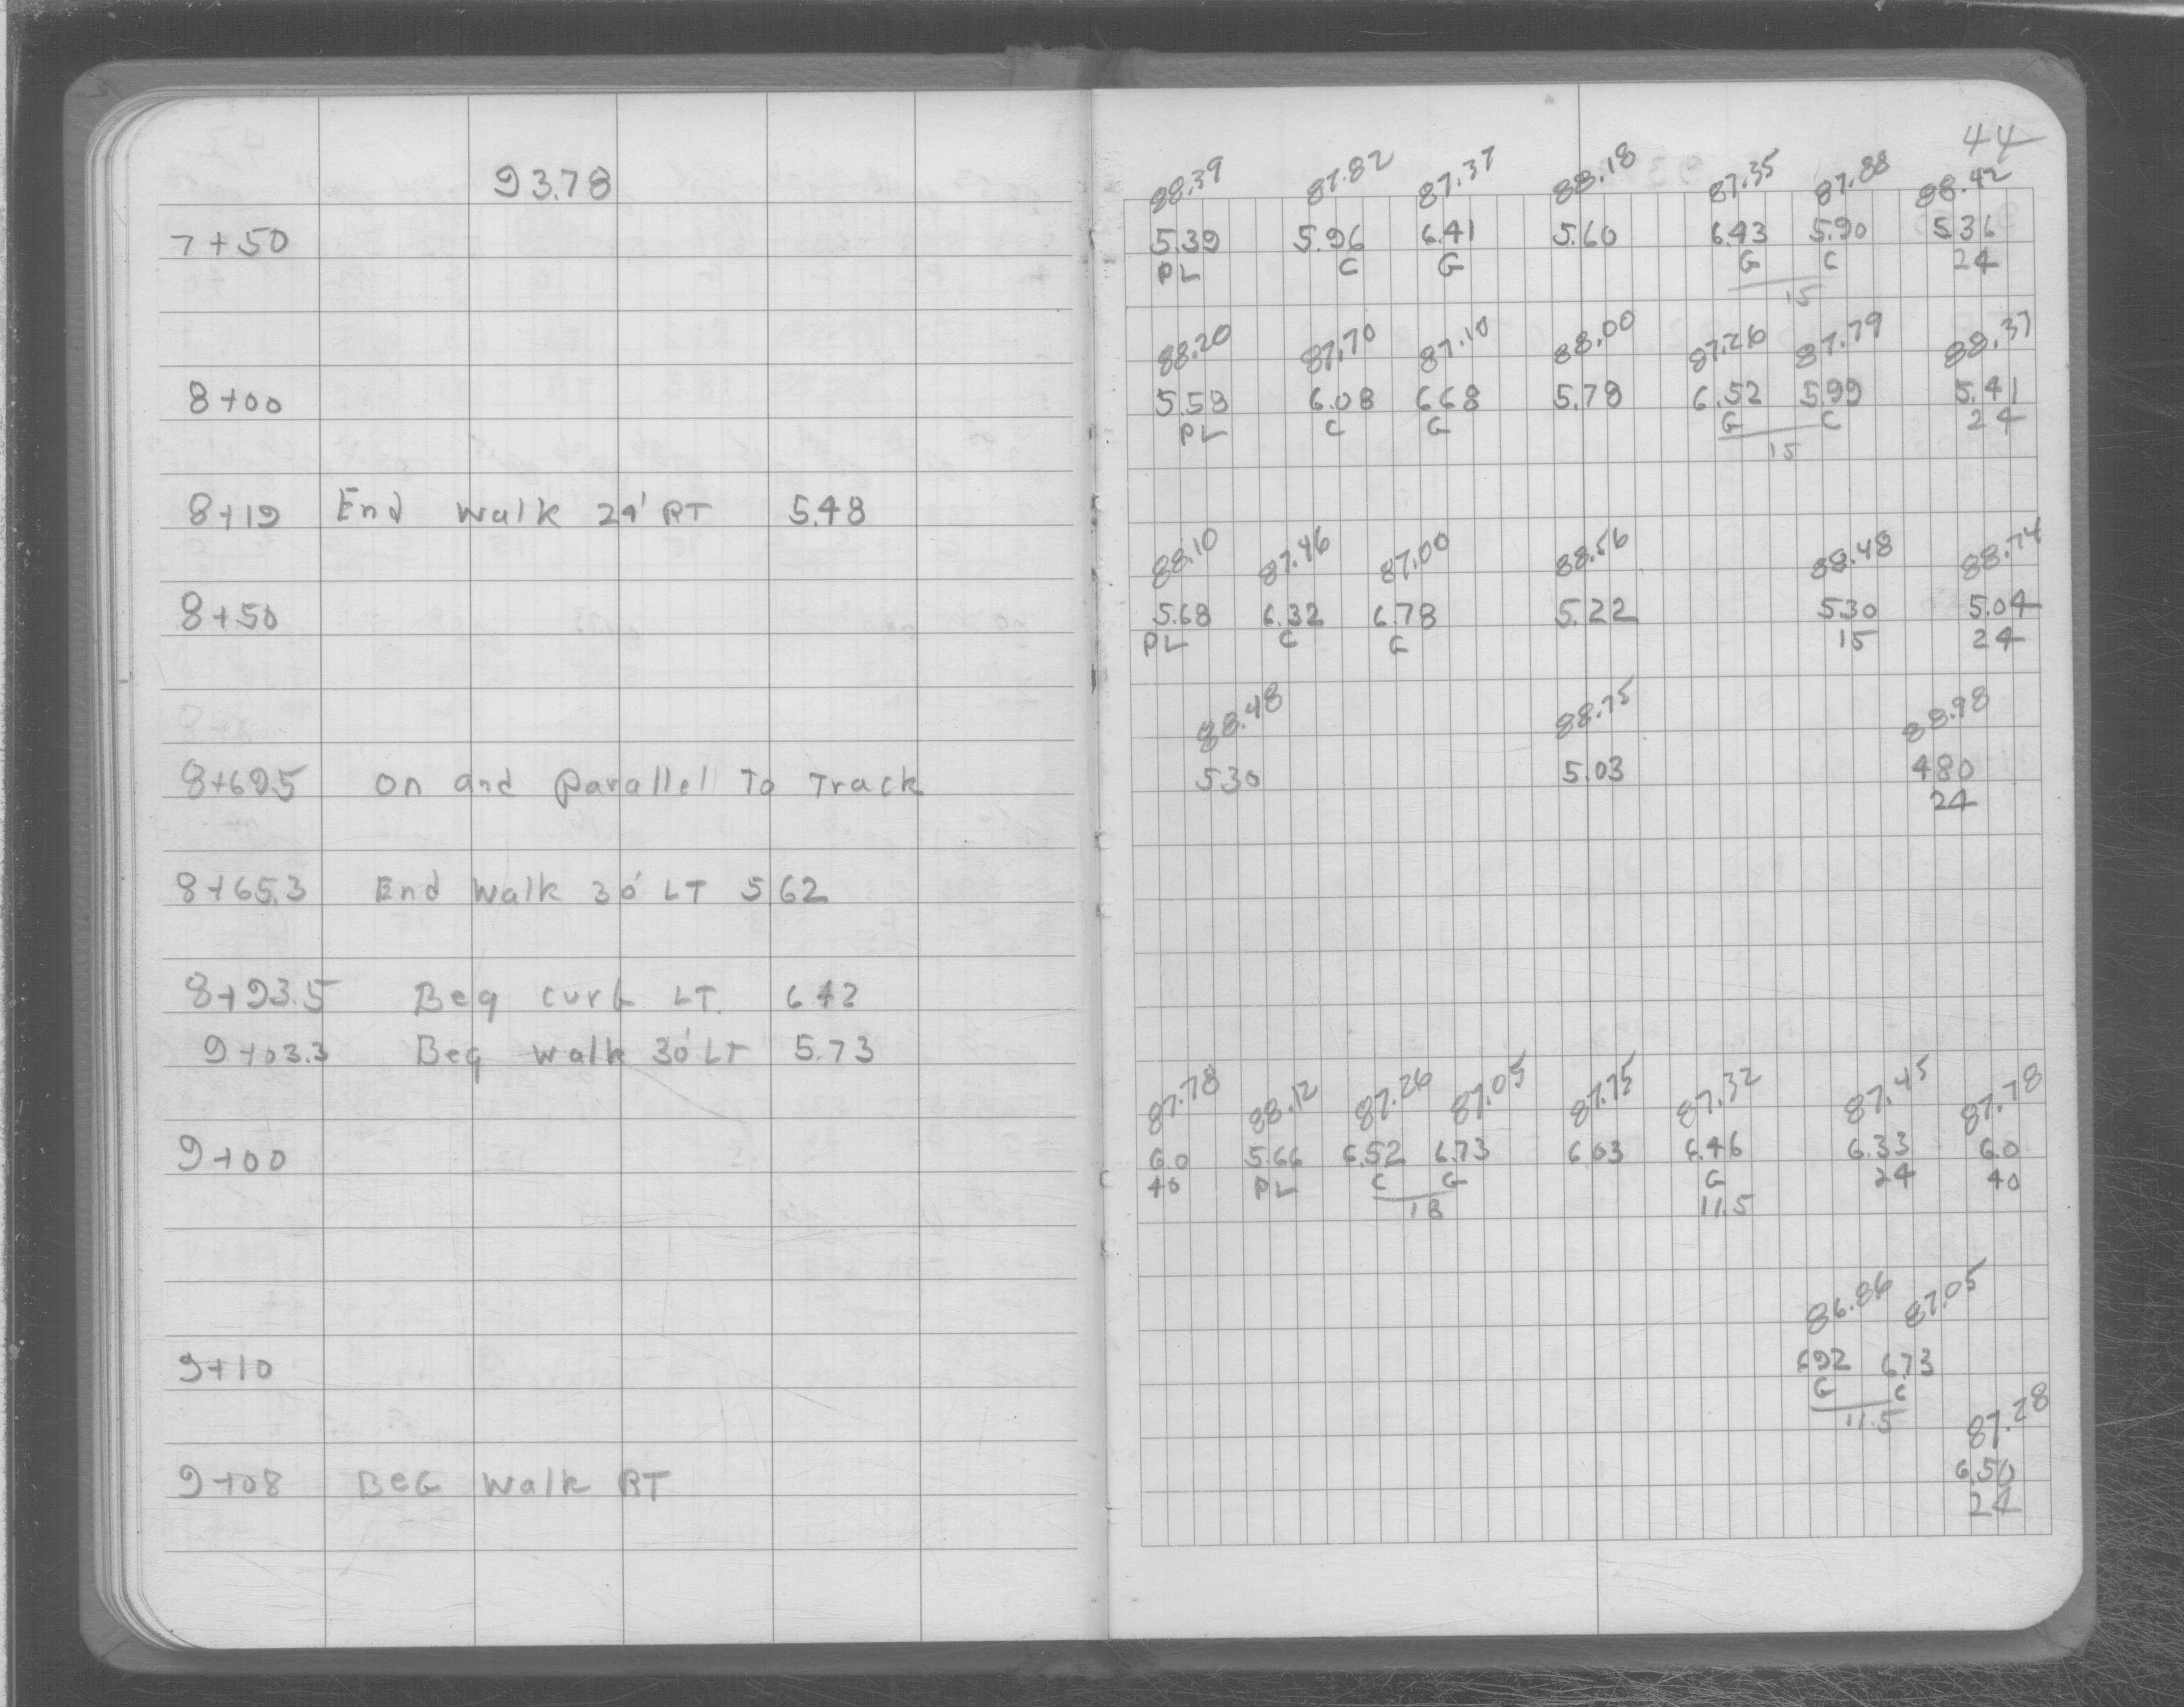 44
93.78
88.39 87.82 87.37 88.18 87.35 87.88 88.42
7+50 5.39 5.96 6.41 5.60 6.43 5.90 5.36
PL C G G C 24
15
88.20 87.70 87.10 88.00 87.26 87.79 88.37
8+00 5.58 6.08 6.68 5.78 6.52 5.99 5.41
PL C G G C 24
15
8+19 End walk 24' RT 5.48
88.10 87.46 87.00 88.56 88.48 88.74
8+50 5.68 6.32 6.78 5.22 5.30 5.04
PL C G 15 24
88.48 88.75 88.98
8+69.5 On and Parallel To Track 5.30 5.03 4.80
24
8+65.3 End Walk 30' LT 5.62
8+93.5 Beg curb LT. 6.42
9+03.3 Beg walk 30' LT 5.73
87.78 88.12 87.26 87.05 87.75 87.32 87.45 87.78
9+00 6.0 5.66 6.52 6.73 6.03 6.46 6.33 6.0
40 PL C G G 24 40
18 11.5
86.86 87.05
9+10 6.92 6.73
G C
11.5
87.28
9+08 BEG Walk RT 6.50
24